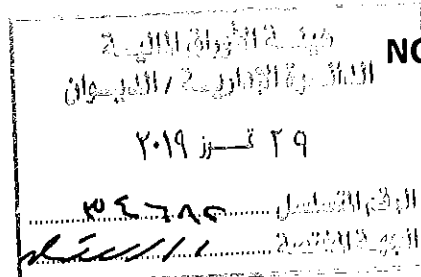 هيئة الأوراق المالية
NO
الدائرة الإدارية / الديوان
٢٩ تموز ٢٠١٩
الرقم المتسلسل
الجهة المختصة